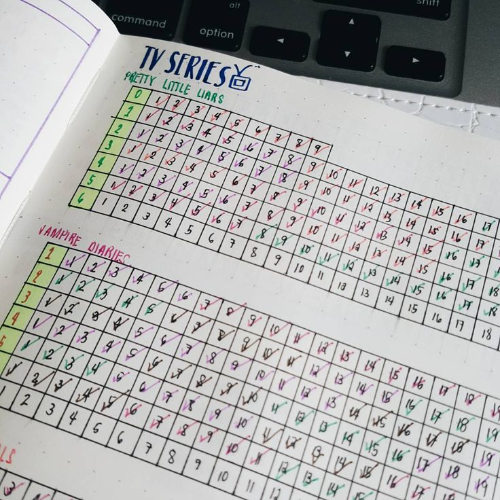 alt
shift
command
option
TV SERIES
PRETTY LITTLE LIARS
0 1 2 3 4 5 6 7 8 9
1 1 2 3 4 5 6 7 8 9 10 11 12 13 14 15 16 17
2 1 2 3 4 5 6 7 8 9 10 11 12 13 14 15 16 17
3 1 2 3 4 5 6 7 8 9 10 11 12 13 14 15 16 17 18
4 1 2 3 4 5 6 7 8 9 10 11 12 13 14 15 16 17 18
5 1 2 3 4 5 6 7 8 9 10 11 12 13 14 15 16 17 18
6 1 2 3 4 5 6 7 8 9 10 11 12 13 14 15 16 17 18
VAMPIRE DIARIES
1 1 2 3 4 5 6 7 8 9 10 11 12 13 14 15 16 17 18
2 1 2 3 4 5 6 7 8 9 10 11 12 13 14 15 16 17 18 19
3 1 2 3 4 5 6 7 8 9 10 11 12 13 14 15 16 17 18 19
4 1 2 3 4 5 6 7 8 9 10 11 12 13 14 15 16 17 18 19
5 1 2 3 4 5 6 7 8 9 10 11 12 13 14 15 16 17 18 19
1 2 3 4 5 6 7 8 9 10 11 12 13 14 15 16 17 18
1 2 3 4 5 6 7 8 9 10 11 12 13 14 15 16 17
LS